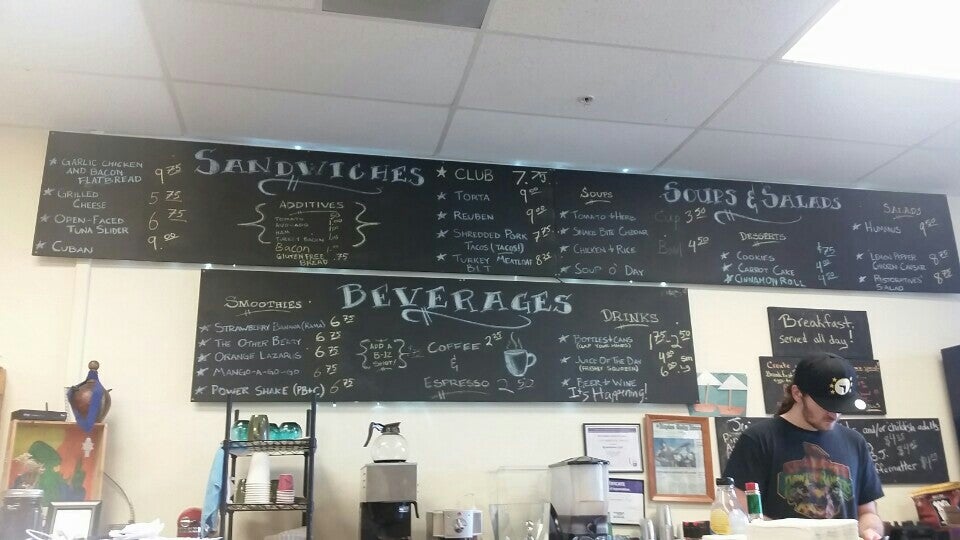 SANDWICHES
★ GARLIC CHICKEN
AND BACON
FLATBREAD 9.75
★ GRILLED
CHEESE 5.75
★ OPEN-FACED
TUNA SLIDER 6.75
★ CUBAN 9.00
ADDITIVES
TOMATO
AVOCADO
HAM
TURKEY BACON
BACON
GLUTEN FREE
BREAD .75
★ CLUB 7.75
★ TORTA 9.00
★ REUBEN 9.00
★ SHREDDED PORK 7.75
TACOS (TACOS!)
★ TURKEY MEATLOAF
BLT
SOUPS & SALADS
SOUPS
★ TOMATO & HERB
★ SNAKE BITE CHEDDAR
★ CHICKEN & RICE
★ SOUP O' DAY
Cup 3.50
Bowl 4.50
DESSERTS
★ COOKIES
★ CARROT CAKE
★ CINNAMON ROLL
SALADS
★ HUMMUS 9.50
★ LEMON PEPPER
CHICKEN CAESAR
★ RESTORATIVE
SALAD
BEVERAGES
SMOOTHIES
★ STRAWBERRY BANANA (RAMA) 6.75
★ THE OTHER BERRY 6.75
★ ORANGE LAZARUS 6.75
★ MANGO-A-GO-GO 6.75
★ POWER SHAKE (PB&C) 6.75
ADD A
B-12
SHOT!
COFFEE 2.25
&
ESPRESSO 2.50
DRINKS
★ BOTTLES & CANS 1.75-2.50
★ JUICE OF THE DAY 4.00 sm
(FRESHLY SQUEEZED)
★ BEER & WINE
It's Happening!
Breakfast,
served all day!
Create
and/or childish adults